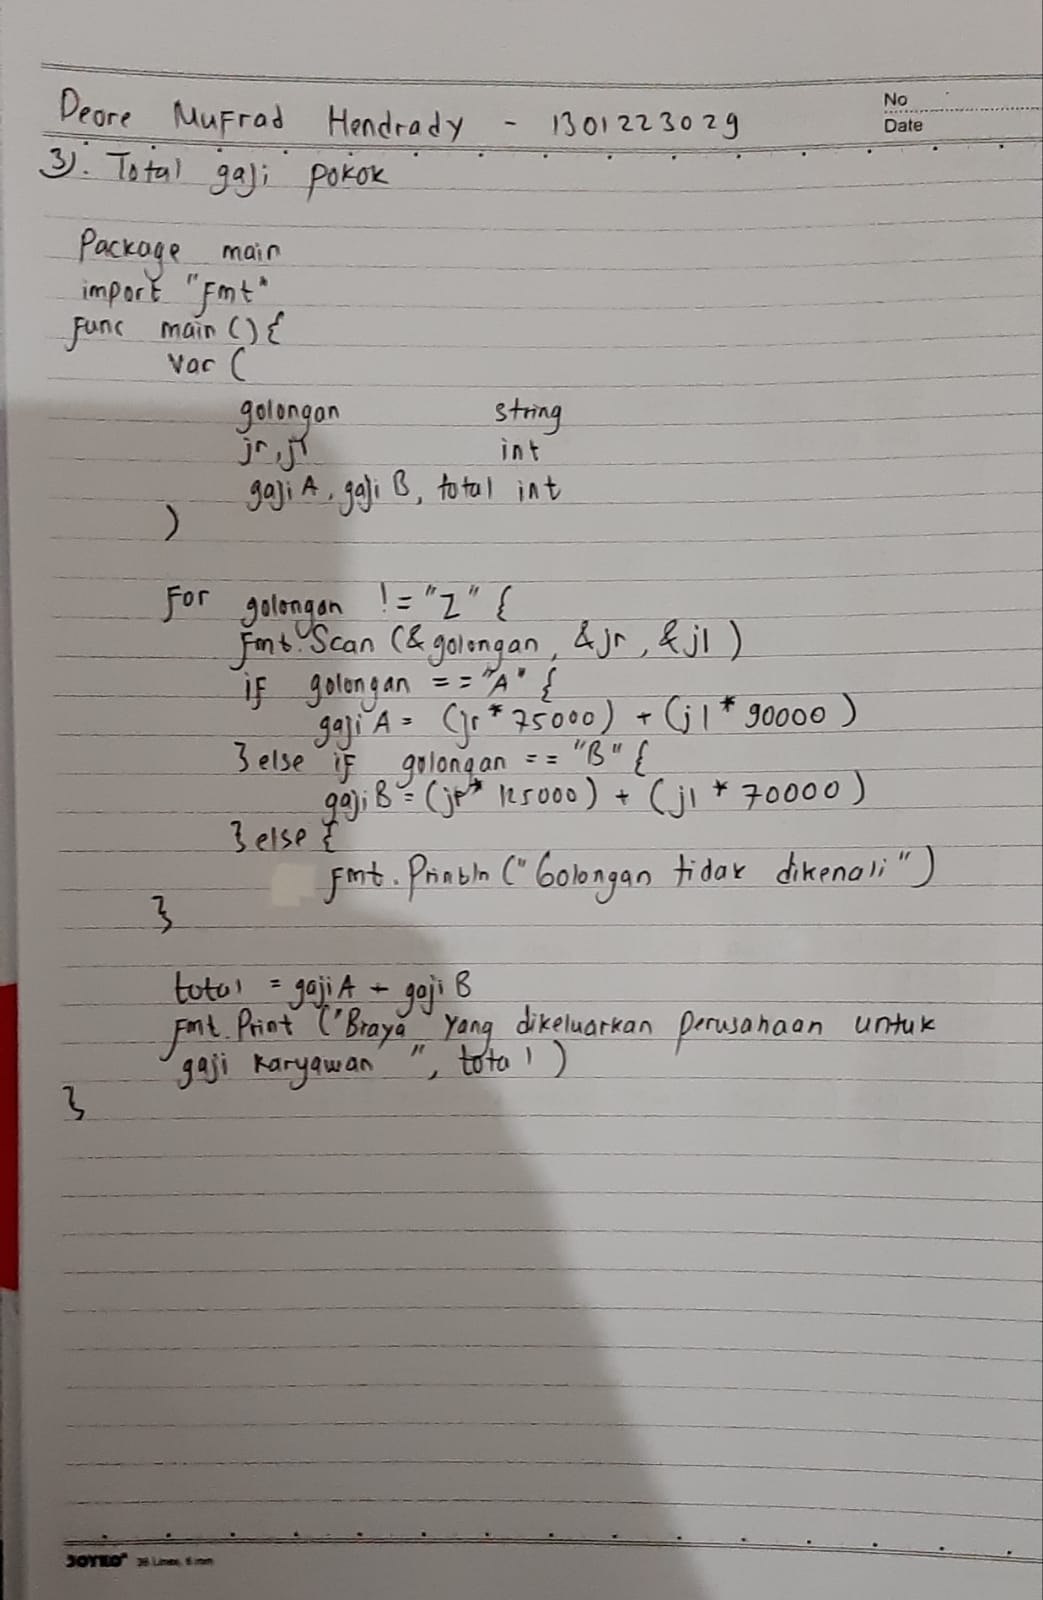 No
Date
Deore Mufrad Hendrady - 1301223029
3). Total gaji pokok
Package main
import "fmt"
func main () {
var (
golongan string
jr, jl int
gaji A, gaji B, total int
)
for golongan != "Z" {
fmt.Scan (& golongan, & jr, & jl )
if golongan == "A" {
gaji A = (jr * 75000) + (jl * 90000 )
} else if golongan == "B" {
gaji B = (jr * 125000) + (jl * 70000 )
} else {
fmt. Println (" Golongan tidak dikenali ")
}
total = gaji A + gaji B
fmt. Print ("Braya yang dikeluarkan perusahaan untuk
gaji karyawan ", total )
}
JOYKO 26 Lines, 6 mm